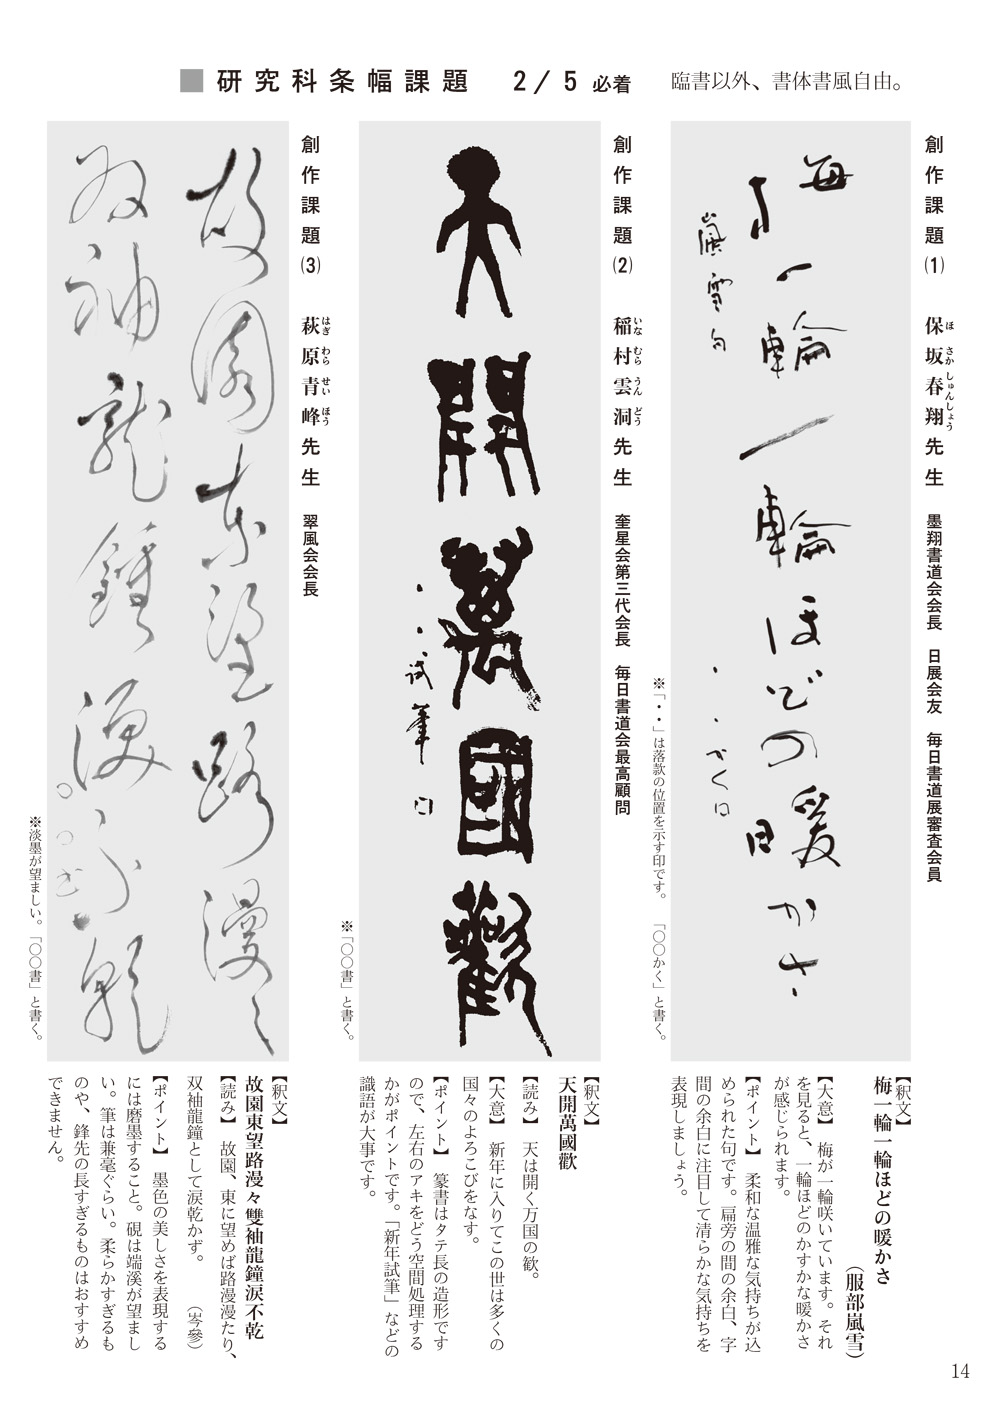 ■研究科条幅課題 2/5 必着 臨書以外、書体書風自由。
創作課題(1) 保坂春翔先生 墨翔書道会会長 日展会友 毎日書道展審査会員
ほ さか しゅんしょう
梅一輪一輪ほどの暖かさ
嵐雪句
・・かく
※「・・」は落款の位置を示す印です。 「〇〇かく」と書く。
【釈文】
梅一輪一輪ほどの暖かさ
(服部嵐雪)
【大意】 梅が一輪咲いています。それ
を見ると、一輪ほどのかすかな暖かさ
が感じられます。
【ポイント】 柔和な温雅な気持ちが込
められた句です。扁旁の間の余白、字
間の余白に注目して清らかな気持ちを
表現しましょう。
創作課題(2) 稲村雲洞先生 奎星会第三代会長 毎日書道会最高顧問
いな むら うん どう
天開萬國歡
・・試筆
※「〇〇書」と書く。
【釈文】
天開萬國歡
【読み】 天は開く万国の歓。
【大意】 新年に入りてこの世は多くの
国々のよろこびをなす。
【ポイント】 篆書はタテ長の造形です
ので、左右のアキをどう空間処理する
かがポイントです。「新年試筆」などの
識語が大事です。
創作課題(3) 萩原青峰先生 翠風会会長
はぎ わら せい ほう
故園東望路漫々
双袖龍鐘涙不乾
〇〇書
※淡墨が望ましい。「〇〇書」と書く。
【釈文】
故園東望路漫々雙袖龍鐘涙不乾
【読み】 故園、東に望めば路漫漫たり、
双袖龍鐘として涙乾かず。 (岑參)
【ポイント】 墨色の美しさを表現する
には磨墨すること。硯は端溪が望まし
い。筆は兼毫ぐらい。柔らかすぎるも
のや、鋒先の長すぎるものはおすすめ
できません。
14